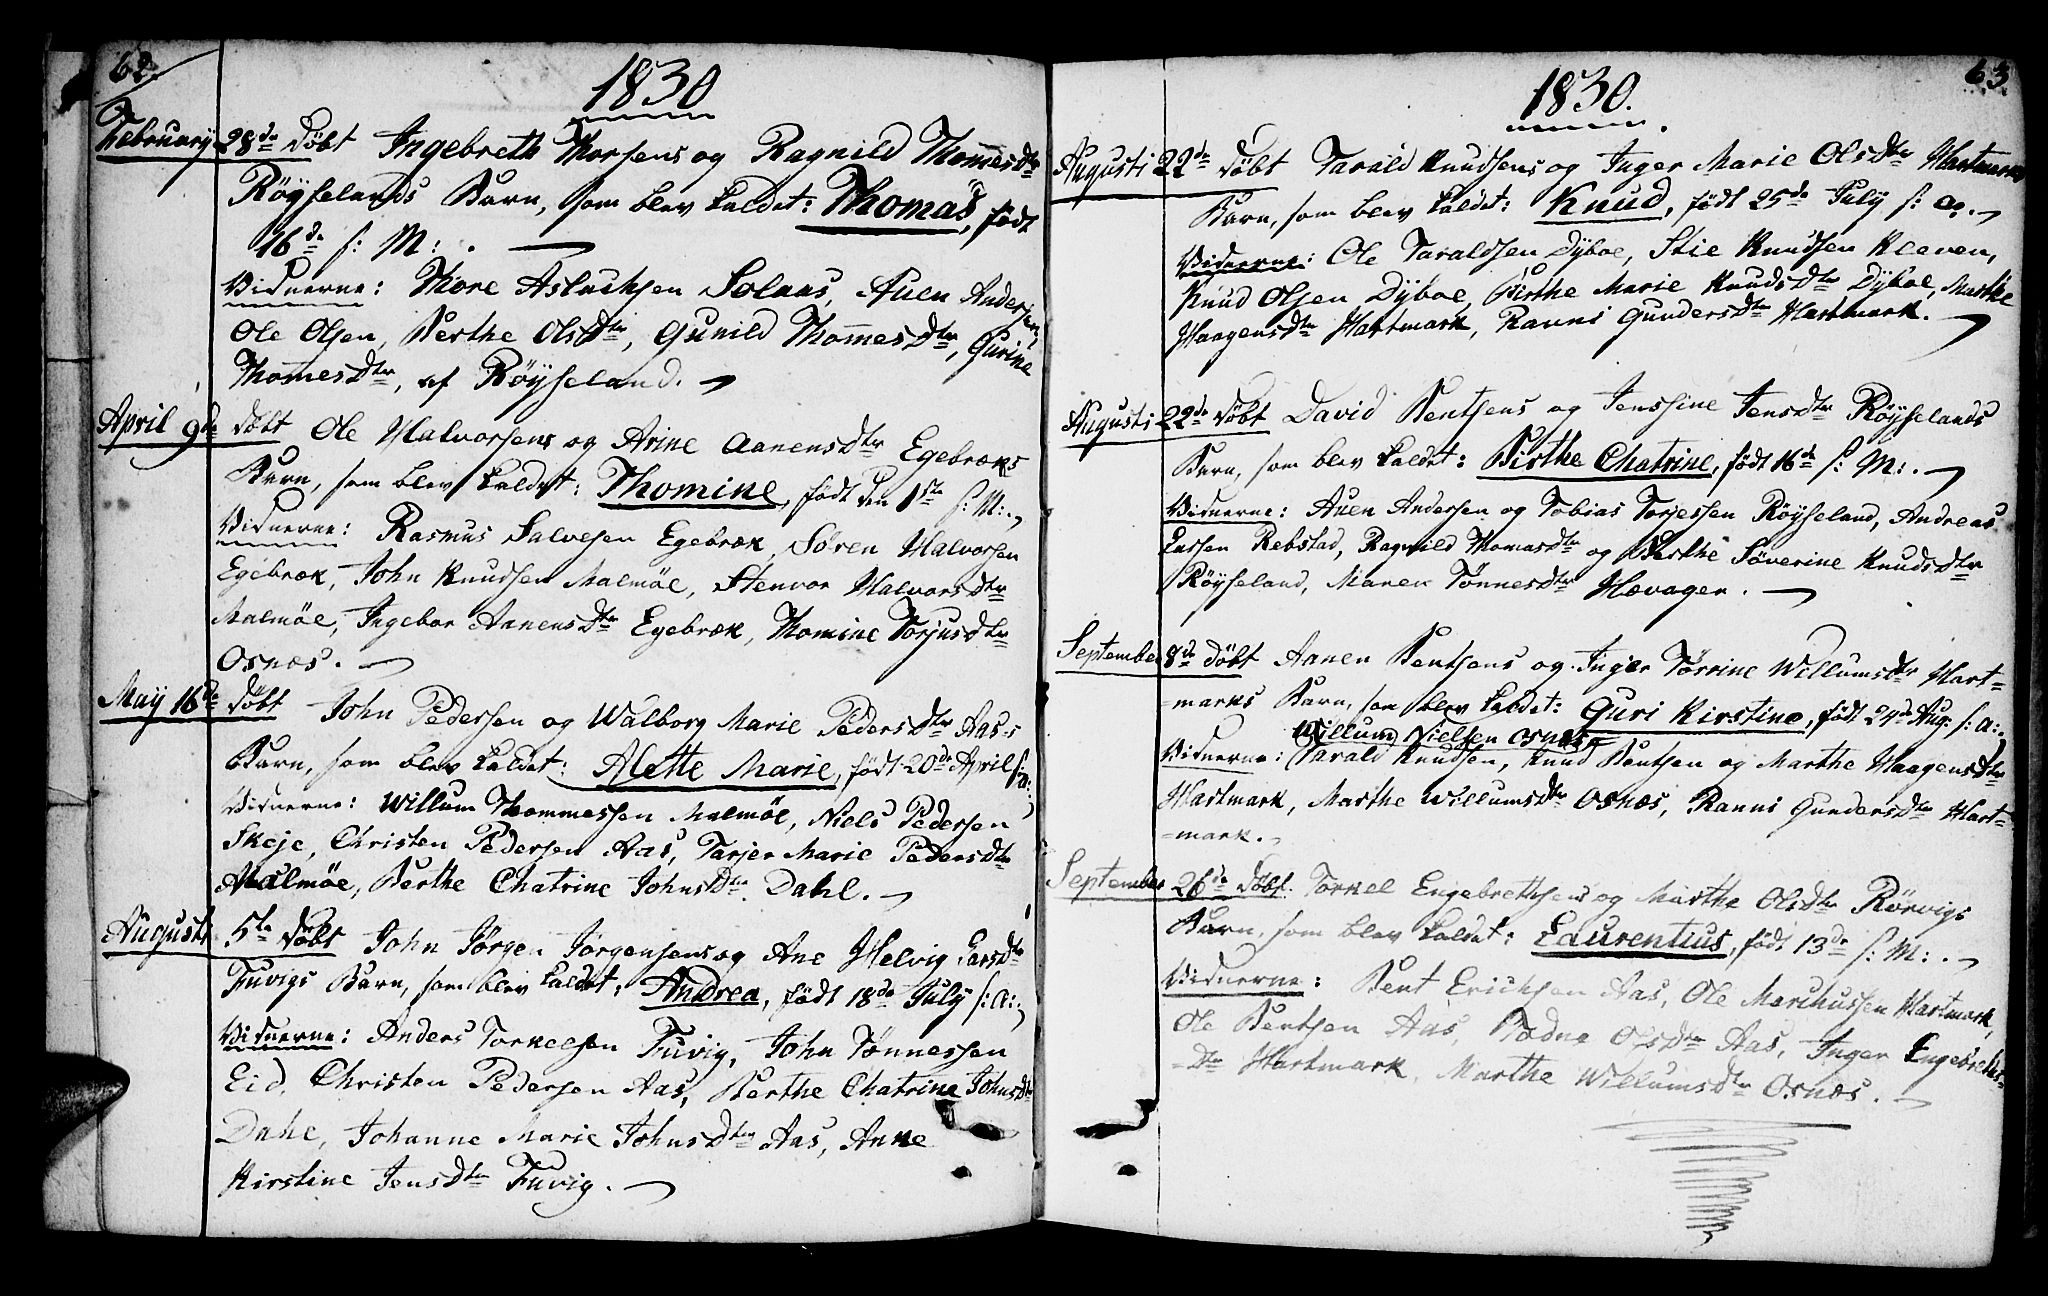 62.
1830
February 28de Døbt Ingebreth Thorsens og Ragnild ThomesDtr
Röÿselands Barn, som blev kaldet: Thomas, født
16de s: M: .
Vidnerne: Thore Aslachsen Solaas, Auen Andersen,
Ole Olsen, Berthe OlsDtr, Gunild ThommesDtr, Gurine
ThomesDtr, af Röÿseland.
April 9de Døbt Ole Halvorsens og Arine AanensDtr Egebræks
Barn, som blev kaldet: Thomine, født den 1ste s: M:.
Vidnerne: Rasmus Salvesen Egebræk, Søren Halvorsen
Egebræk, John Knudsen Malmöe, Stenvor HalvorsDtr
Malmöe, Ingebor AanensDtr Egebræk, Thomine TorjusDtr
Osnæs.
May 16de Døbt John Pedersen og Walborg Marie PedersDtr Aas's
Barn, som blev kaldet: Alette Marie, født 20de April s: a:,
Vidnerne: Willum Thommessen Malmöe, Niels Pedersen
Skeje, Christen Pedersen Aas, Tarjer Marie PedersDtr
Malmöe, Berthe Chatrine JohnsDtr Dahl.
Augusti 5te Døbt John Jørgen Jørgensens og Ane Helvig LarsDtr
Fuvigs Barn, som blev kaldet: Andrea, født 18de July s: a:,
Vidnerne: Anders Torkelsen Fuvig, John Tønnessen
Eid, Christen Pedersen Aas, Berthe Chatrine JohnsDtr
Dahl, Johanne Marie JohnsDtr Aas, Anne
Kirstine JensDtr Fuvig.
63.
1830.
Augusti 22de Døbt Tarald Knudsens og Inger Marie OlsDtr Hartmarks
Barn, som blev kaldet: Knud, født 25de July s: a.
Vidnerne: Ole Taraldsen Dyboe, Stie Knudsen Kleven,
Knud Olsen Dyboe, Birthe Marie KnudsDtr Dyboe, Marthe
HaagensDtr Hartmark, Ranni GundersDtr Hartmark.
Augusti 22de Døbt David Bentsens og Jenssine JensDtr Röÿselands
Barn, som blev kaldet: Birthe Chatrine, født 16de s: M: .
Vidnerne: Auen Andersen og Tobias Torjessen Röÿseland, Andreas
Larsen Rebstad, Ragnild ThomasDtr og Berthe Søverine KnudsDtr
Röÿseland, Maren TönnesDtr Hævager.
September 8de Døbt Aanen Bentsens og Inger Tørrine WillumsDtr Hart=
=marks Barn, som blev kaldet: Guri Kirstine, født 24de Aug: s: a:.
Willum Nielsen Osnæs
Vidnerne: Tarald Knudsen, Knud Bentsen og Marthe HaagensDtr
Hartmark, Marthe WillumsDtr Osnæs, Ranni GundersDtr Hart=
=mark.
September 26de Døbt. Torkel Engebrethsens og Marthe OlsDtr Rörvigs
Barn, som blev kaldet: Laurentius, født 13de s: M: .
Vidnerne: Bent Erichsen Aas, Ole Marchussen Hartmark,
Ole Bentsen Aas, Todne OlsDtr Aas, Inger Engebreths=
=Dtr Hartmark, Marthe WillumsDtr Osnæs.